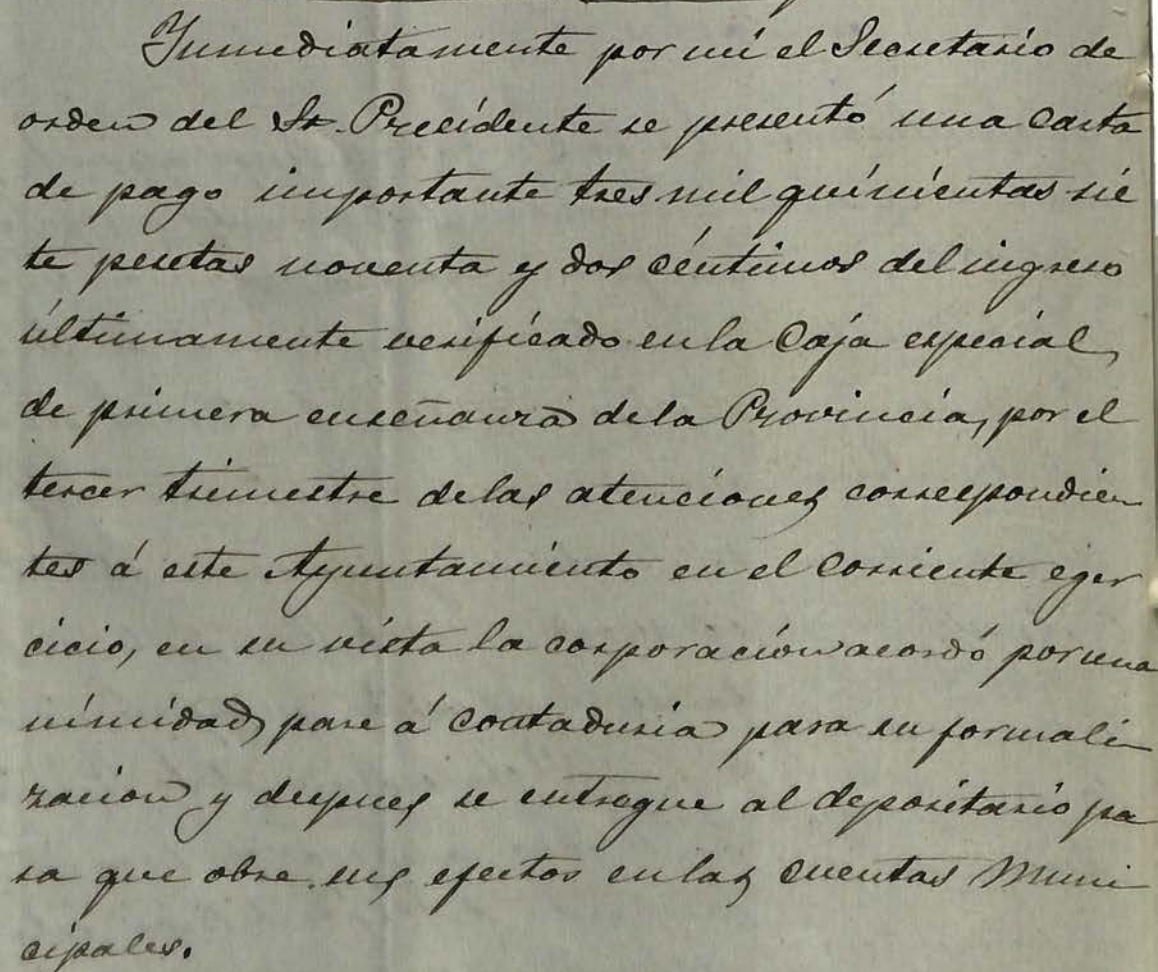 Inmediatamente por mi el Secretario de
orden del Sr. Precidente se presentó una carta
de pago importante tres mil quinientas sie
te pesetas noventa y dos céntimos del ingreso
últimamente verificado en la Caja especial
de primera enseñanza de la Provincia, por el
tercer trimestre de las atenciones correspondien
tes á este Ayuntamiento en el corriente eger
cicio, en su vista la corporación acordó por una
nimidad pase á contaduria para su formali
zacion y despues se entregue al depositario pa
ra que obre sus efectos en las cuentas Muni
cipales.